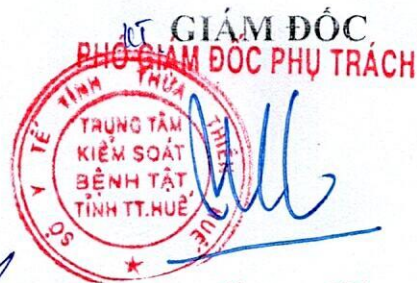 KT GIÁM ĐỐC
PHÓ GIÁM ĐỐC PHỤ TRÁCH
SỞ Y TẾ TỈNH THỪA THIÊN HUẾ
TRUNG TÂM
KIỂM SOÁT
BỆNH TẬT
TỈNH TT.HUẾ